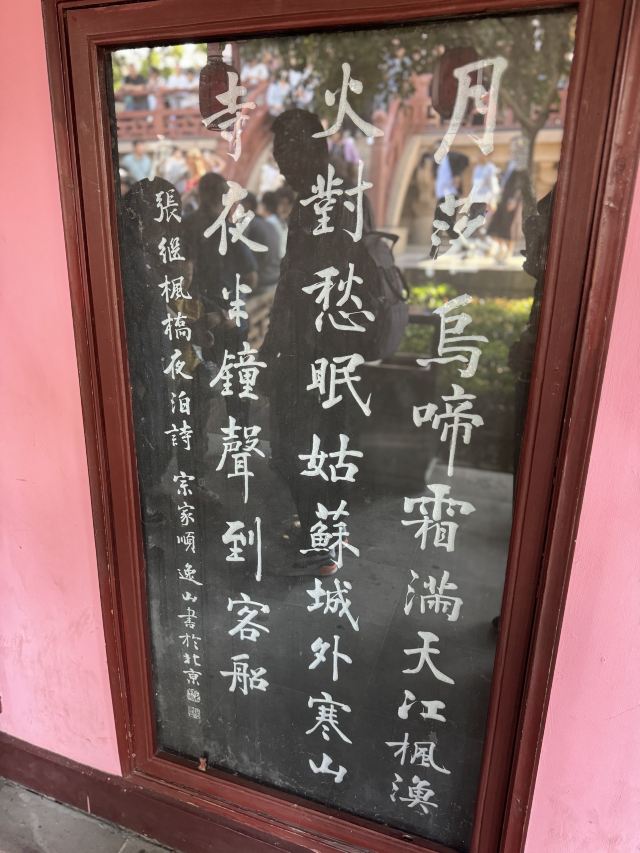 月落烏啼霜滿天江楓漁
火對愁眠姑蘇城外寒山
寺夜半鐘聲到客船
張继楓橋夜泊詩 宗家順逸山書於北京